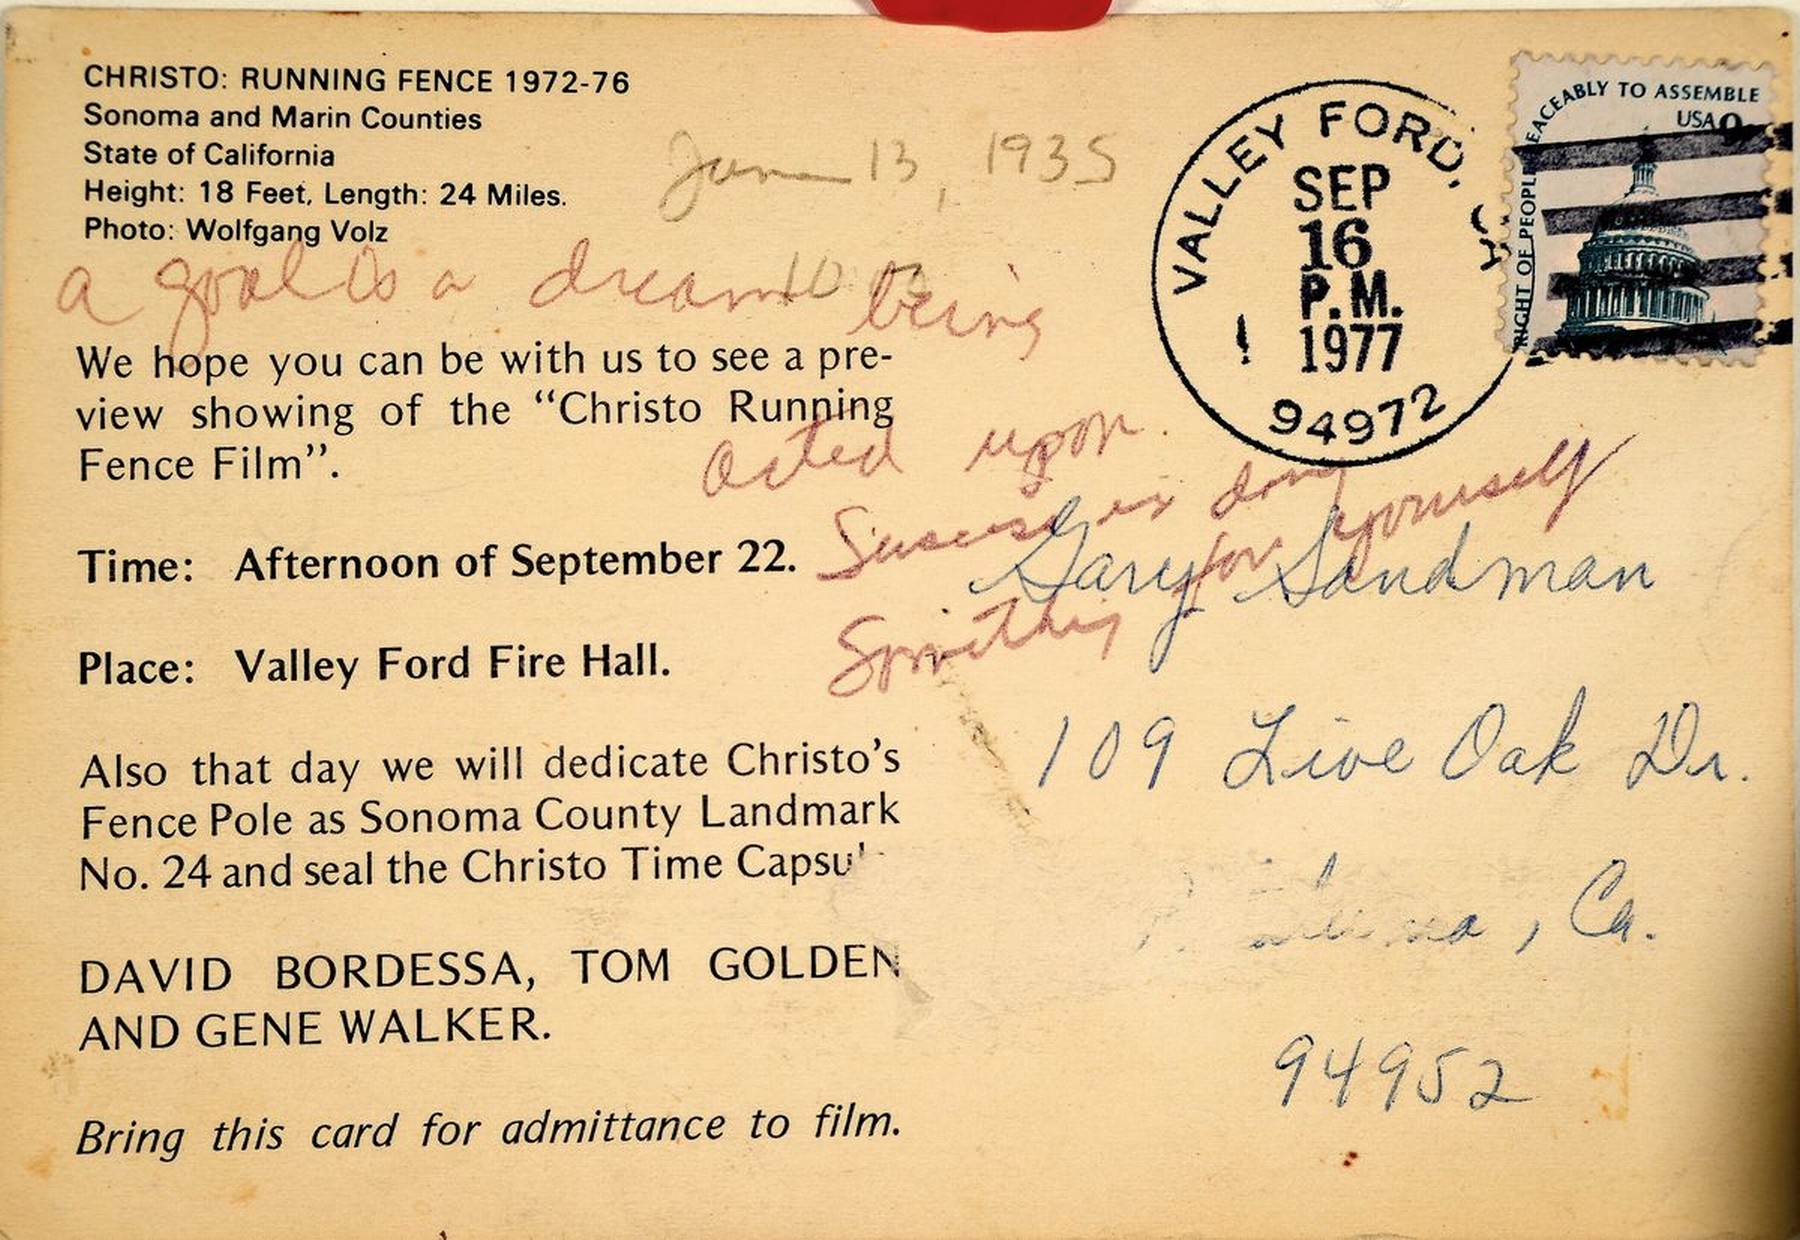 CHRISTO: RUNNING FENCE 1972-76
Sonoma and Marin Counties
State of California
Height: 18 Feet, Length: 24 Miles.
Photo: Wolfgang Volz
June 13, 1935
a goal is a dream being
acted upon.
Success is doing
Something for yourself
We hope you can be with us to see a pre-
view showing of the “Christo Running
Fence Film”.
Time: Afternoon of September 22.
Place: Valley Ford Fire Hall.
Also that day we will dedicate Christo’s
Fence Pole as Sonoma County Landmark
No. 24 and seal the Christo Time
DAVID BORDESSA, TOM GOLDEN
AND GENE WALKER.
Bring this card for admittance to film.
VALLEY FORD, CA
SEP
16
P.M.
1977
94972
RIGHT OF PEOPLE PEACEABLY TO ASSEMBLE
USA
Gary Sandman
109 Live Oak Dr.
, Ca.
94952